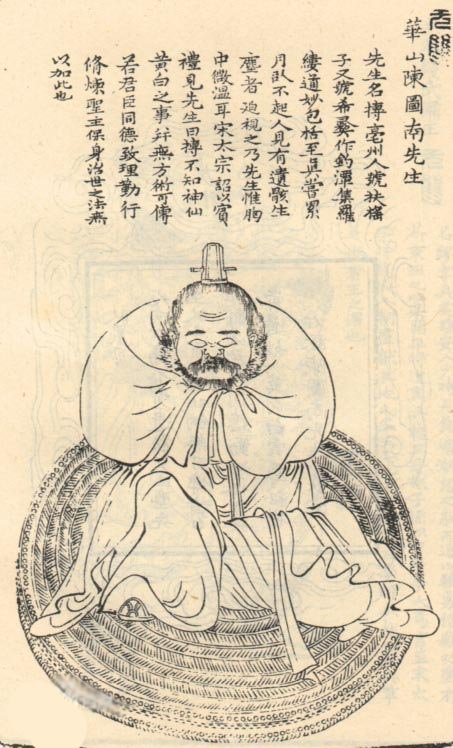 无雙
華山陳圖南先生
先生名摶亳州人號扶搖
子又號希彝作釣潭集羅
縷道妙包括至真嘗累
月臥不起人見有遺骸生
塵者迫視之乃先生惟胸
中微溫耳宋太宗詔以賓
禮見先生曰摶不知神仙
黄白之事并無方術可傳
若君臣同德致理勤行
脩煉聖主保身治世之法無
以加此也